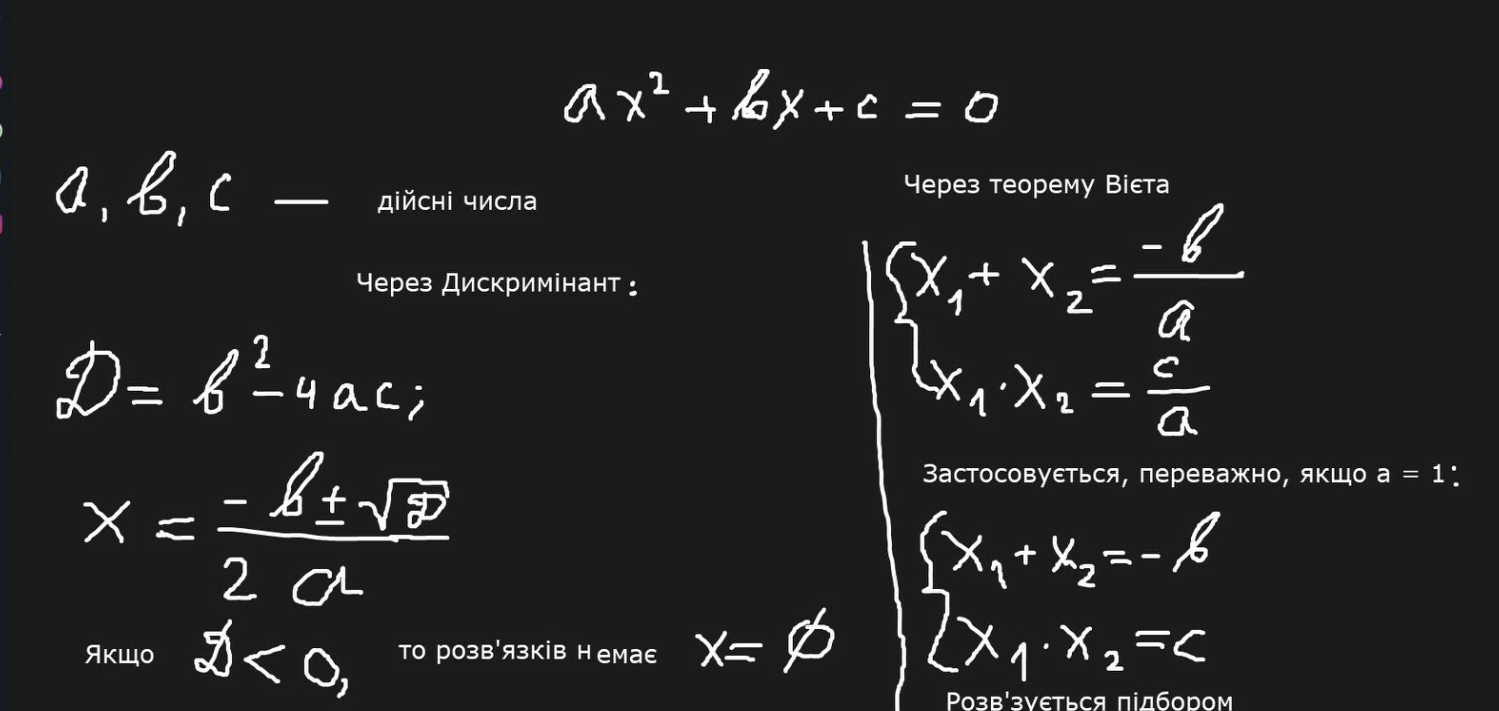 ax² + bx + c = 0
a, b, c — дійсні числа
Через Дискримінант:
D = b² - 4ac;
x = (-b ± √D) / (2a)
Якщо D < 0, то розв'язків немає x = ∅
Через теорему Вієта
{ x₁ + x₂ = -b / a
x₁ · x₂ = c / a
Застосовується, переважно, якщо a = 1:
{ x₁ + x₂ = -b
x₁ · x₂ = c
Розв'зується підбором